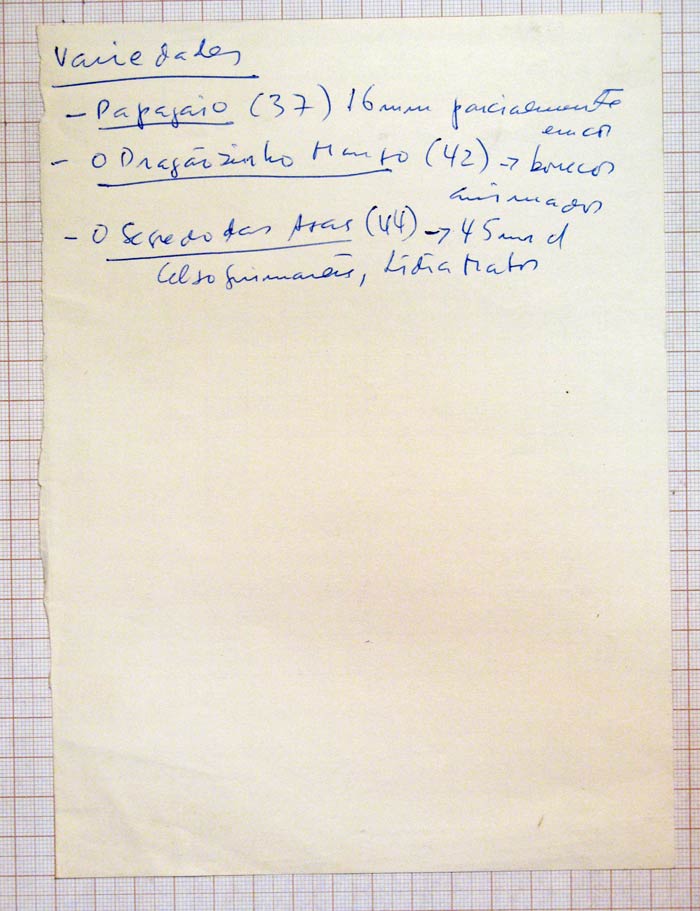 Variedades
- Papagaio (37) 16mm parcialmente
em cor
- O Dragãozinho Manso (42) → bonecos
animados
- O Segredo das Asas (44) → 45mn d
Celso Guimarães, Lídia Matos